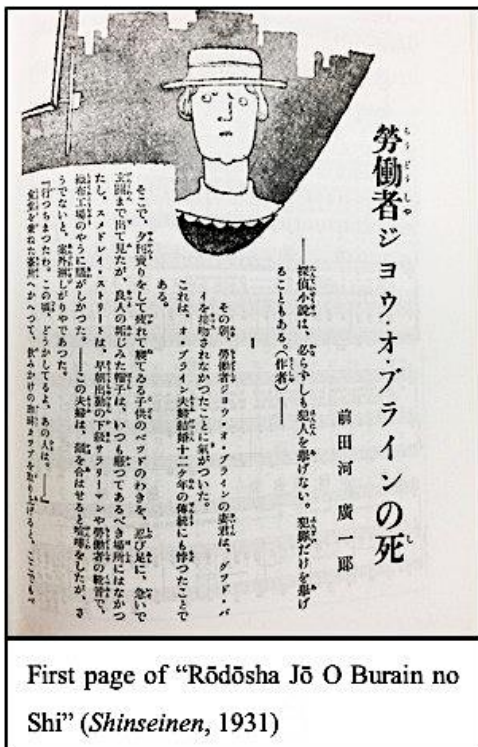 勞働者ジョウ・オ・ブラインの死
前田河廣一郎
――探偵小説は、必らずしも犯人を擧げない。犯罪だけを擧げ
ることもある。(作者)――
一
その朝、勞働者ジョウ・オ・ブラインの妻君は、グツド・バ
イを接吻されなかつたことに氣がついた。
これは、オ・ブライン夫婦結婚十二ケ年の傳統にも悖つたことで
ある。
そこで、夕刊賣りをして疲れて寢てゐる子供のベツドのわきを、忍び足に、急いで
玄關まで出て見たが、良人の垢じみた帽子は、いつも懸つてあるべき場所にはなかつ
たし、スメドレイ・ストリートは、早朝出勤の下級サラリーマンや勞働者の靴音で、
織布工場のやうに騷がしかつた。――この夫婦は、顏を合はせると喧嘩をしたが、さ
うでないと、案外淋しがりやであつた。
『行つちまつたわ。この頃、どうかしてるよ、あの人は。――』
First page of “Rōdōsha Jō O Burain no
Shi” (Shinseinen, 1931)